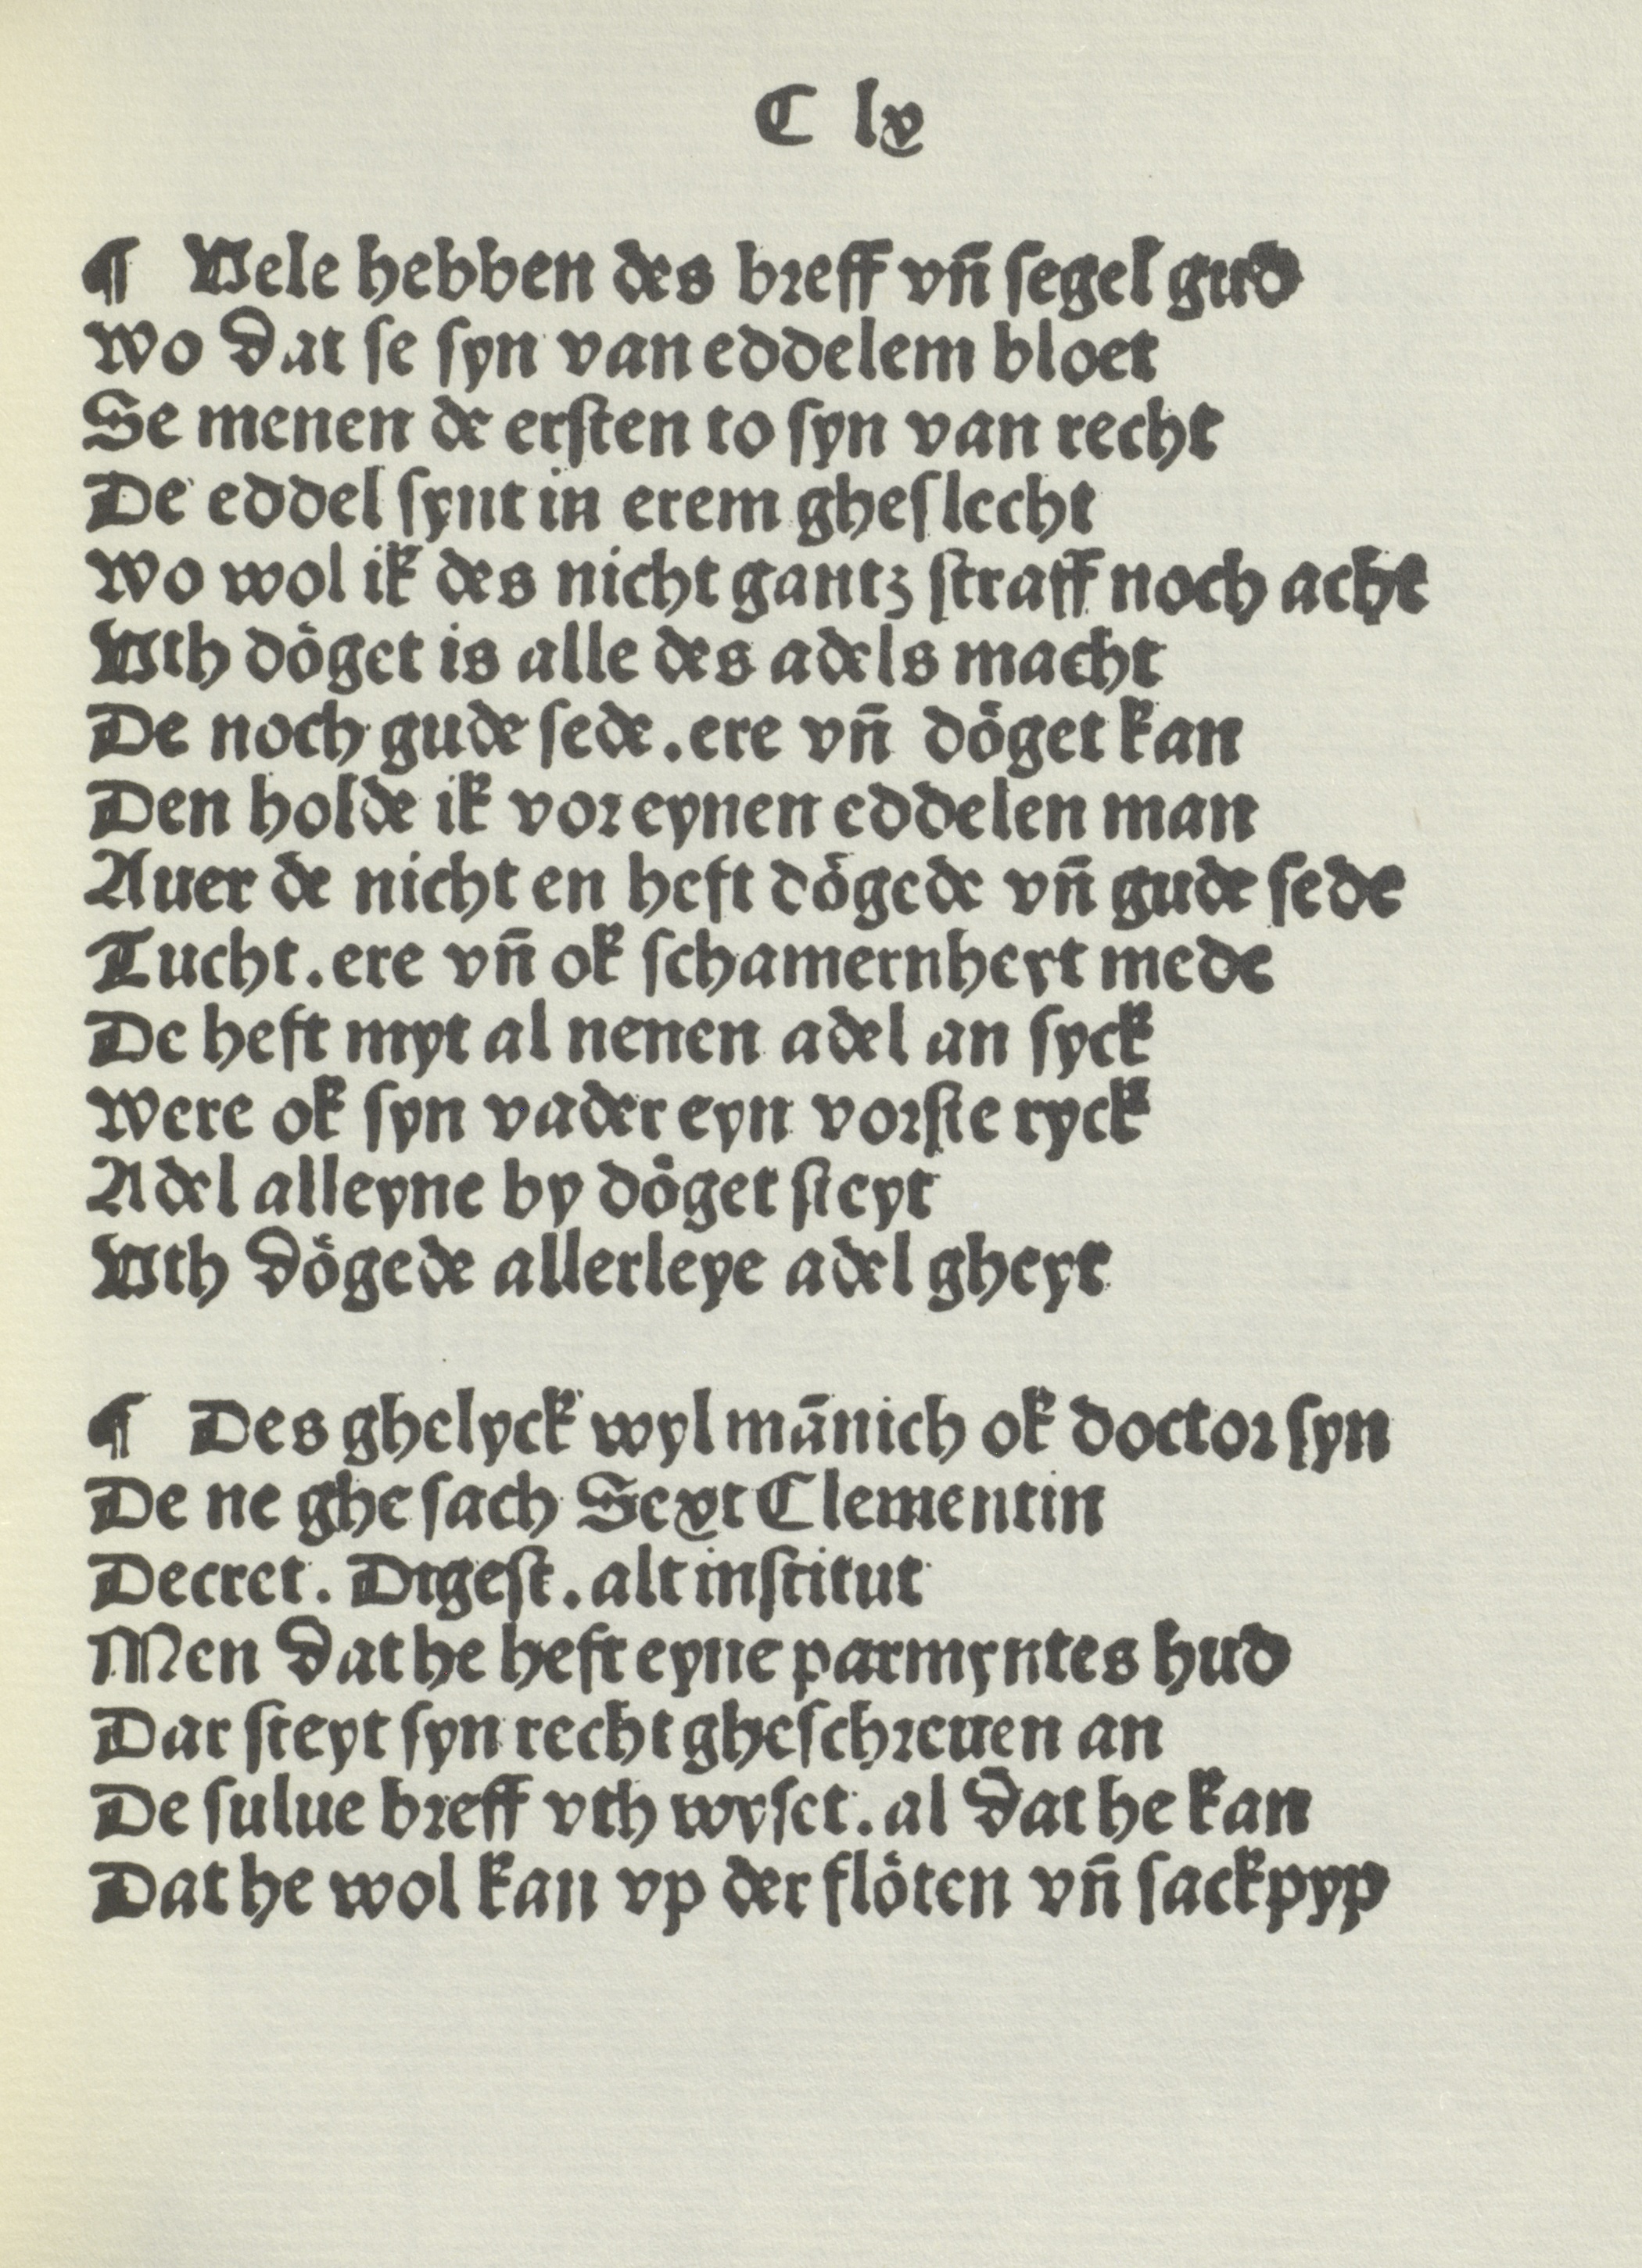 C lx
¶ Vele hebben des breff vñ ſegel gud
Wo dat ſe ſyn van eddelem bloet
Se menen de erſten to ſyn van recht
De eddel ſynt in erem gheſlecht
Wo wol ik des nicht gantz ſtraff noch acht
Vth döget is alle des adels macht
De noch gude ſede. ere vñ döget kan
Den holde ik vor eynen eddelen man
Auer de nicht en heft dögede vñ gude ſede
Tucht. ere vñ ok ſchamernheyt mede
De heft myt al nenen adel an ſyck
Were ok ſyn vader eyn vorſte ryck
Adel alleyne by döget ſteyt
Vth dögede allerleye adel gheyt
¶ Des ghelyck wyl mānich ok doctor ſyn
De ne gheſach Sext Clementin
Decret. Digeſt. alt inſtitut
Men dat he heft eyne parmyntes hud
Dar ſteyt ſyn recht gheſchreuen an
De ſulue breff vth wyſet. al dat he kan
Dat he wol kan vp der flöten vñ ſackpyp